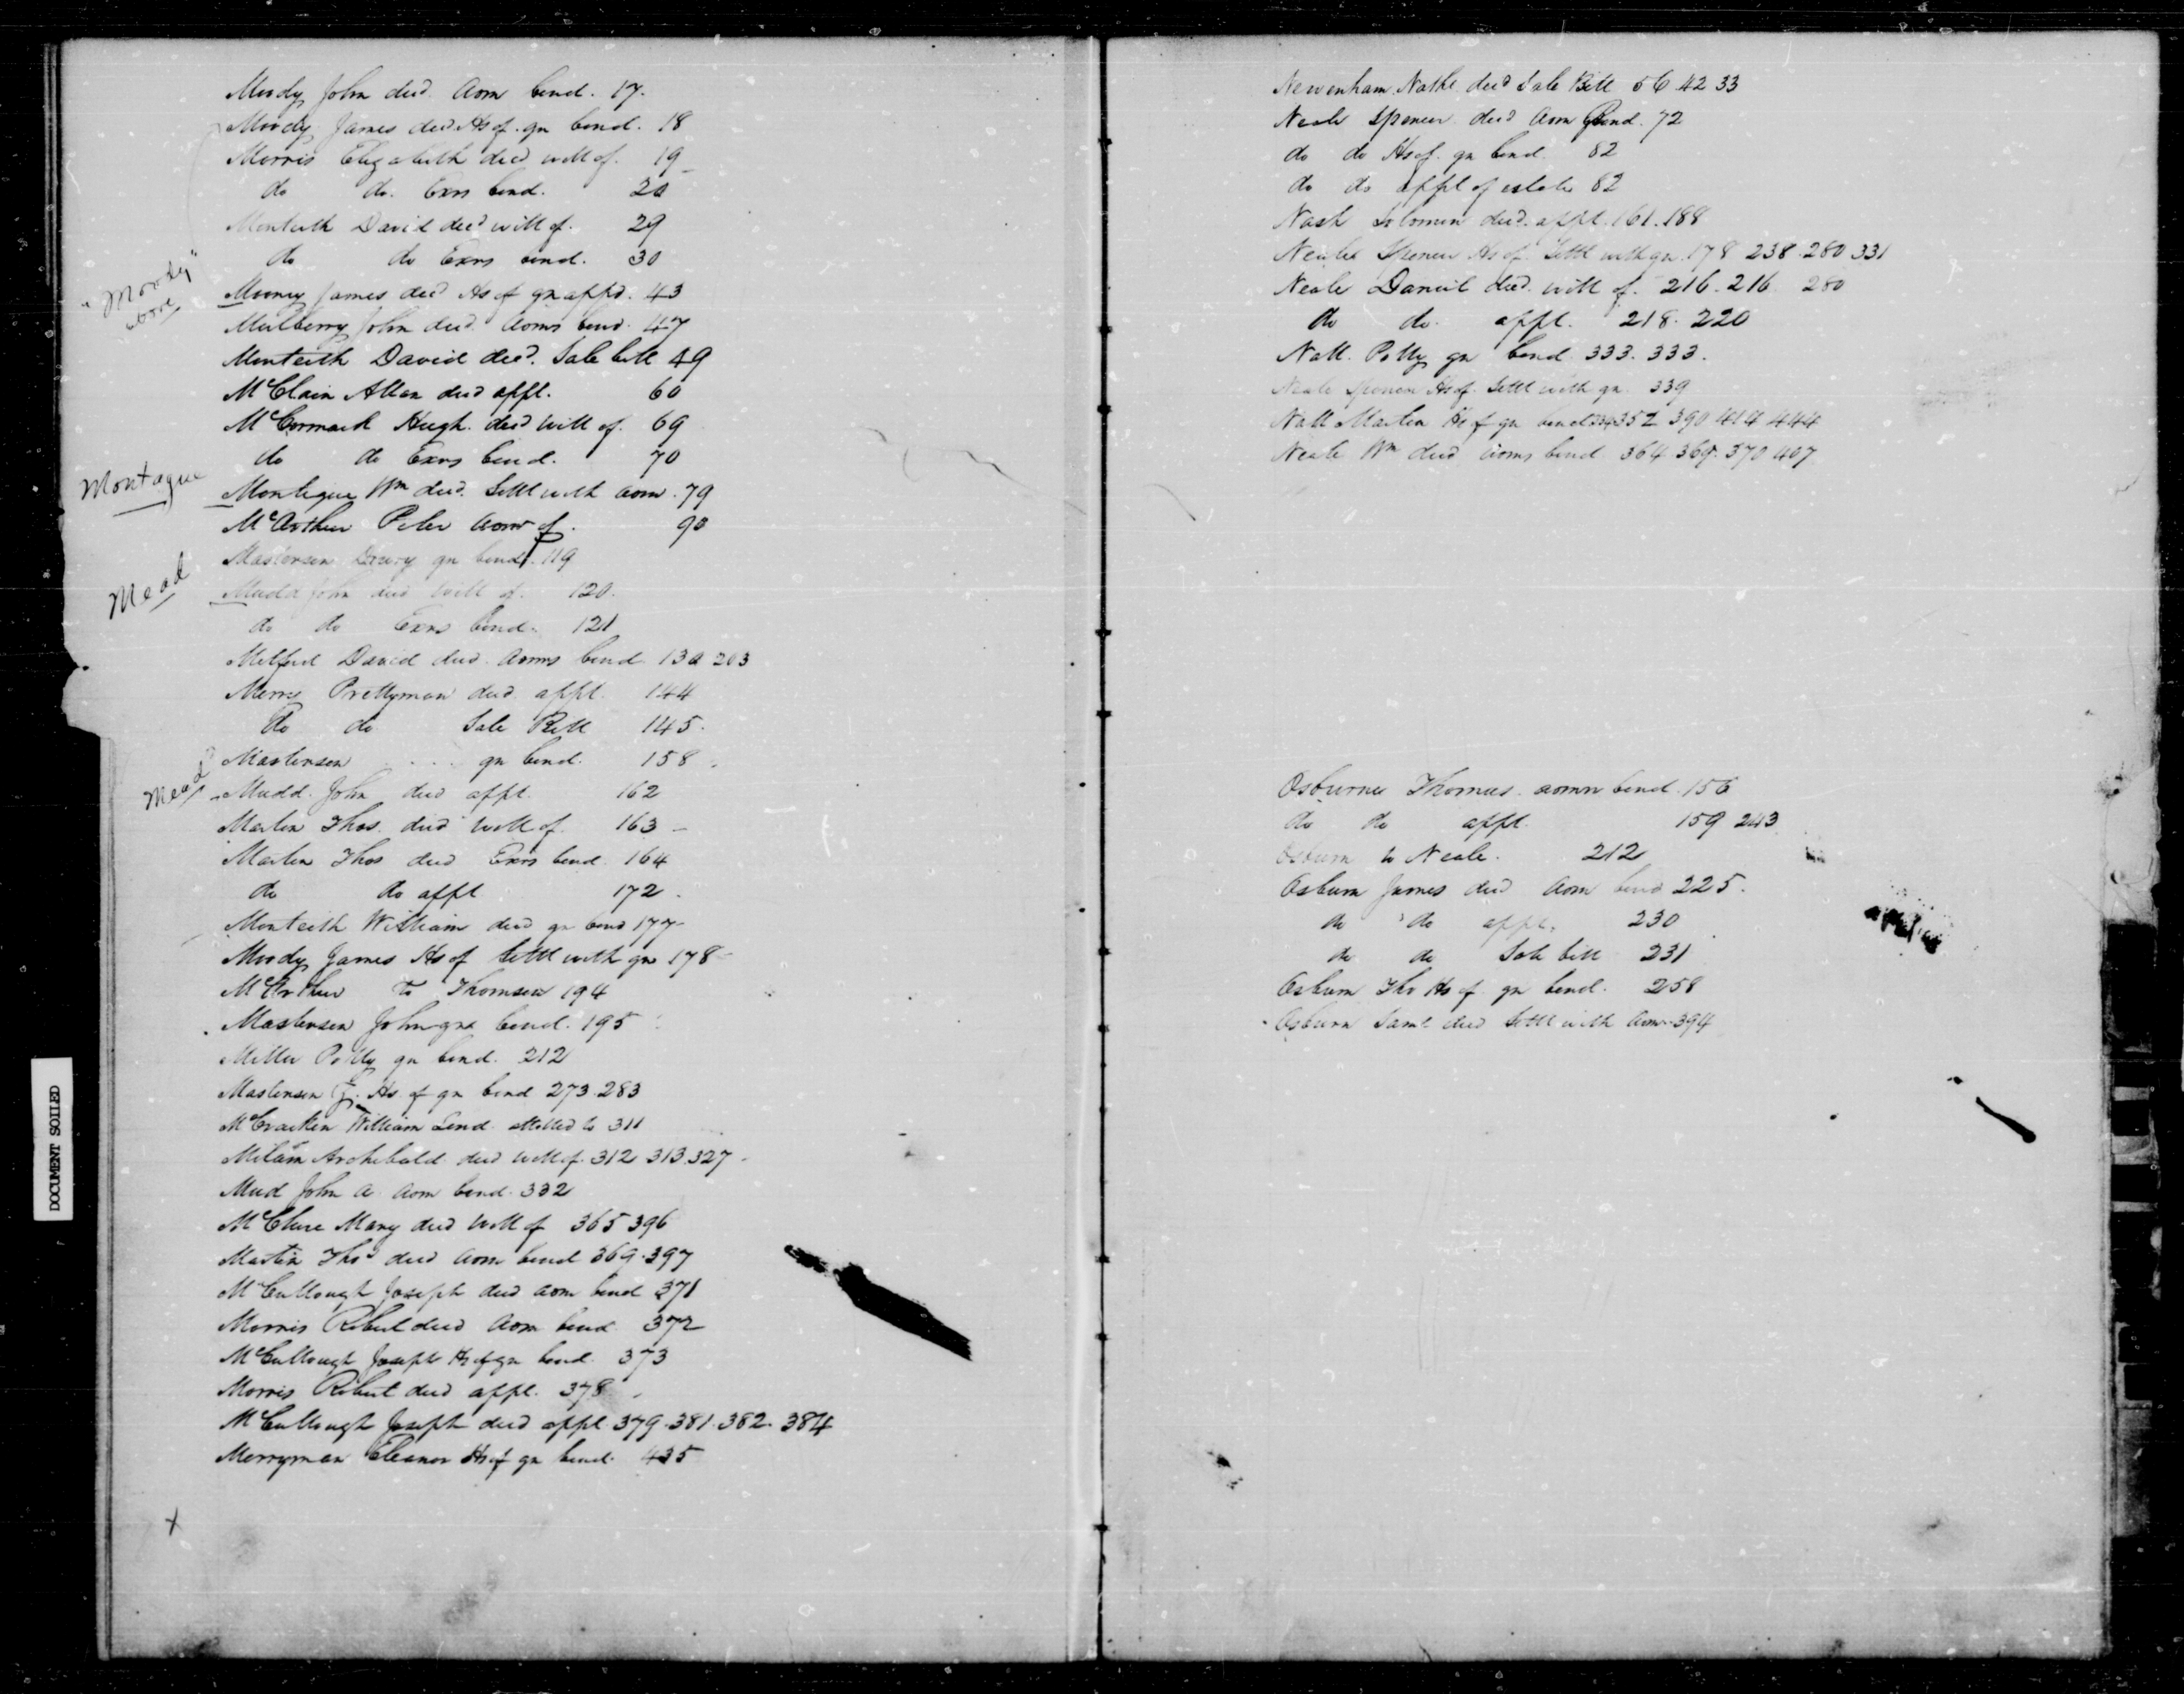 Moody John decd Adm bond. 17.
Moody James decd Hs of. gn bond. 18
Morris Elizabeth decd will of. 19
do do. Exrs bond. 20
Monteith David decd will of. 29
do do Exrs bond. 30
"Moody" above
Mooney James decd Hs of gn appd. 43
Mulberry John decd. Adms bond. 47
Monteith David decd. Sale bill 49
McClain Allan decd appt. 60
McCormack Hugh. decd will of. 69
do do Exrs bond. 70
Montague
Montigue Wm decd. Settt with adm. 79
McArthur Peter admr of. 90
Masterson Drury gn bond. 119
Mead
Mudd John decd will of. 120.
do do Exrs bond. 121
Milford David decd. Adms bond 130 203
Merry Prettyman decd. appt. 144
do do Sale Bill 145.
Masterson . . . gn bond. 158
Mead
Mudd. John decd appt. 162
Martin Thos. decd will of. 163
Martin Thos decd Exrs bond. 164
do do appt 172.
Monteith William decd gn bond 177
Moody James Hs of Settt with gn 178
McArthur to Thomson 194
Masterson John gn bond. 195
Miller Polly gn bond. 212
Masterson J. Hs. of gn bond 273.283
McCracken William Lind. attetted to 311
Milam Archibald decd will of. 312 313.327
Mud John A. Adm bond. 332
McClure Mary decd will of 365 396
Martin Thos decd Adm bond 369.397
McCullough Joseph decd adm bond 371
Morris Robert decd Adm bond 372
McCullough Joseph Hs of gn bond. 373
Morris Robert decd appt. 378
McCullough Joseph decd appt 379.381.382.384
Merryman Eleanor Hs of gn bond. 435
x
DOCUMENT SOILED
Newenham Nathl. decd Sale Bill 56 42 33
Neale Spencer decd Adm Bond. 72
do do Hs of. gn bond. 82
do do appt of estate 82
Nash Solomon decd. appt. 161.188
Neale Spencer Hs of. Settt with gn. 178 238.280 331
Neale Daniel decd. will of. 216.216 280
do do. appt. 218.220
Nall. Polly gn bond 333.333.
Neale Spencer Hs of. Settt with gn. 339
Nall Martin Hs of gn bond 352 390 414 444
Neale Wm decd adms bond 364 369.370 407
Osburne Thomas. admn bond. 156
do do appt. 159 243
Osburn to Neale. 212
Osburn James decd Adm bond 225.
do do appt. 230
do do Sale bill 231
Osburn Tho Hs of gn bond. 258
Osburn Saml. decd Settt with Adm 394